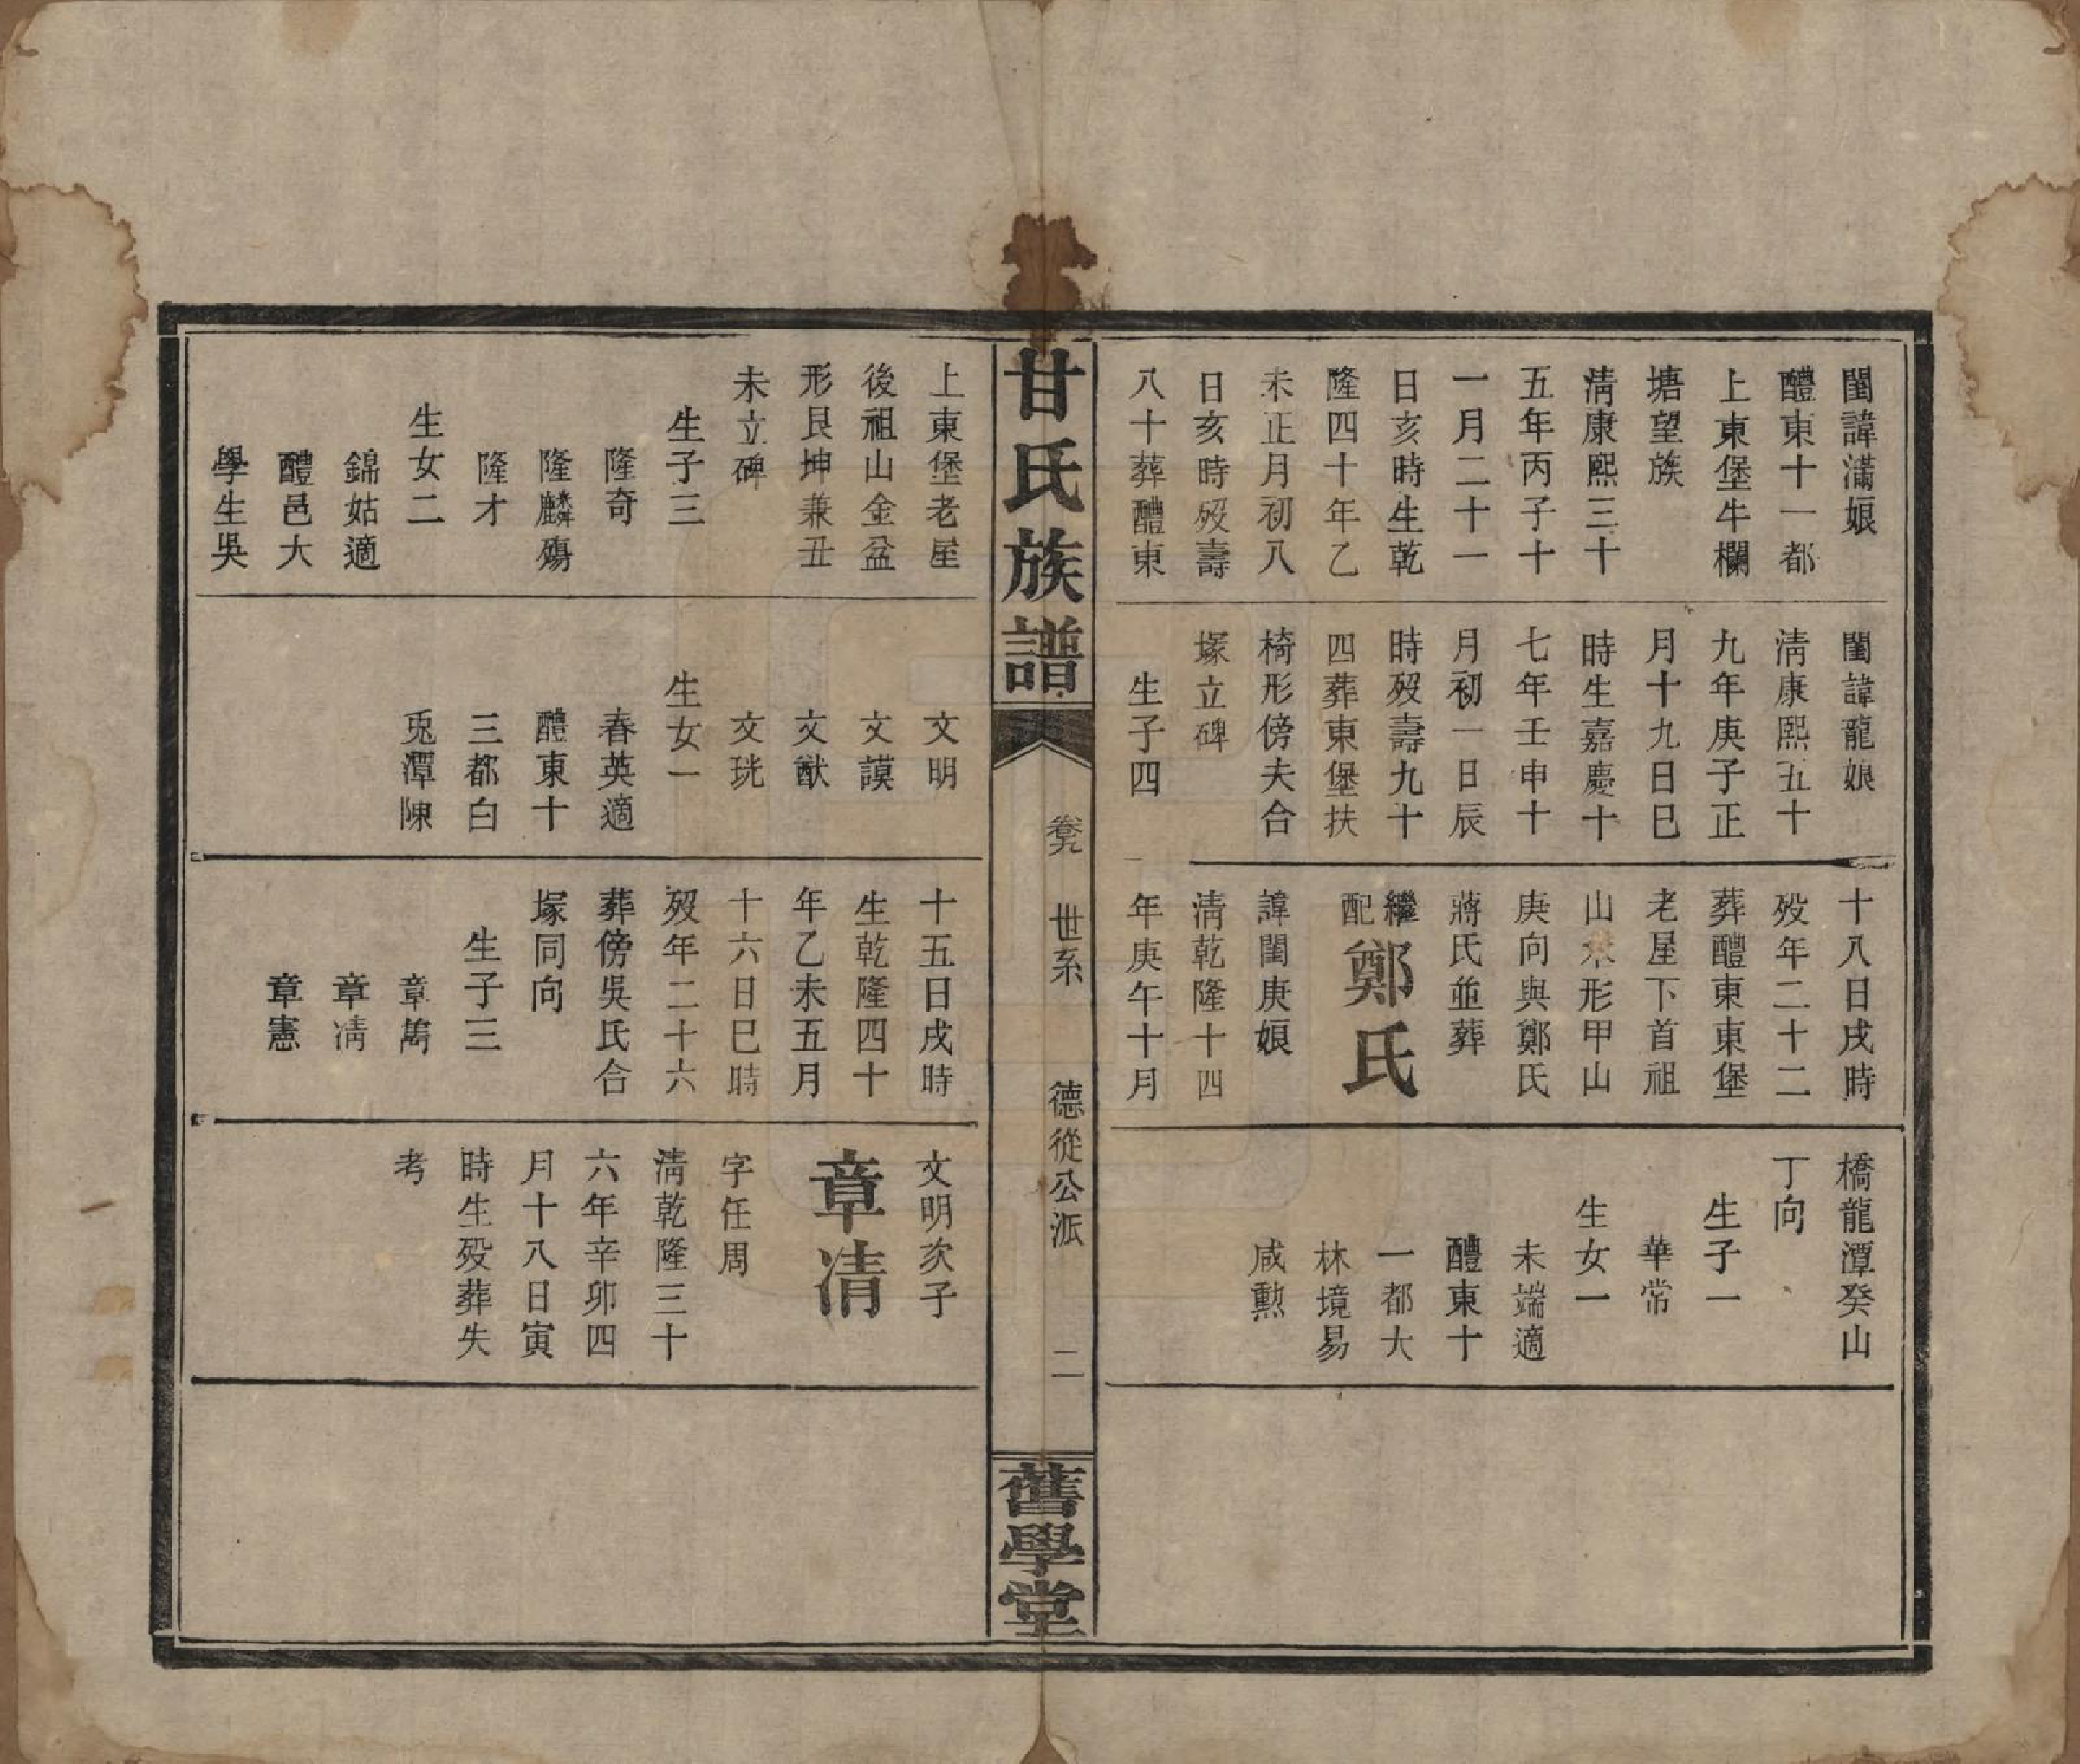 閨諱滿娘
醴東十一都
上東堡牛欄
塘望族
淸康熙三十
五年丙子十
一月二十一
日亥時生乾
隆四十年乙
未正月初八
日亥時歿壽
八十葬醴東
閨諱龍娘
淸康熙五十
九年庚子正
月十九日巳
時生嘉慶十
七年壬申十
月初一日辰
時歿壽九十
四葬東堡扶
椅形傍夫合
塚立碑
生子四
十八日戌時
歿年二十二
葬醴東東堡
老屋下首祖
山形甲山
庚向與鄭氏
蔣氏並葬
繼配鄭氏
諱閨庚娘
淸乾隆十四
年庚午十月
橋龍潭癸山
丁向
生子一
華常
生女一
未端適
醴東十
一都大
林境易
咸勲
甘氏族譜
卷九
世系
德從公派
二
舊學堂
上東堡老屋
後祖山金盆
形艮坤兼丑
未立碑
生子三
隆奇
隆麟殤
隆才
生女二
錦姑適
醴邑大
學生吳
文明
文謨
文猷
文珖
生女一
春英適
醴東十
三都白
兎潭陳
十五日戌時
生乾隆四十
年乙未五月
十六日巳時
歿年二十六
葬傍吳氏合
塚同向
生子三
章嶲
章凊
章憲
文明次子
章凊
字任周
淸乾隆三十
六年辛卯四
月十八日寅
時生歿葬失
考